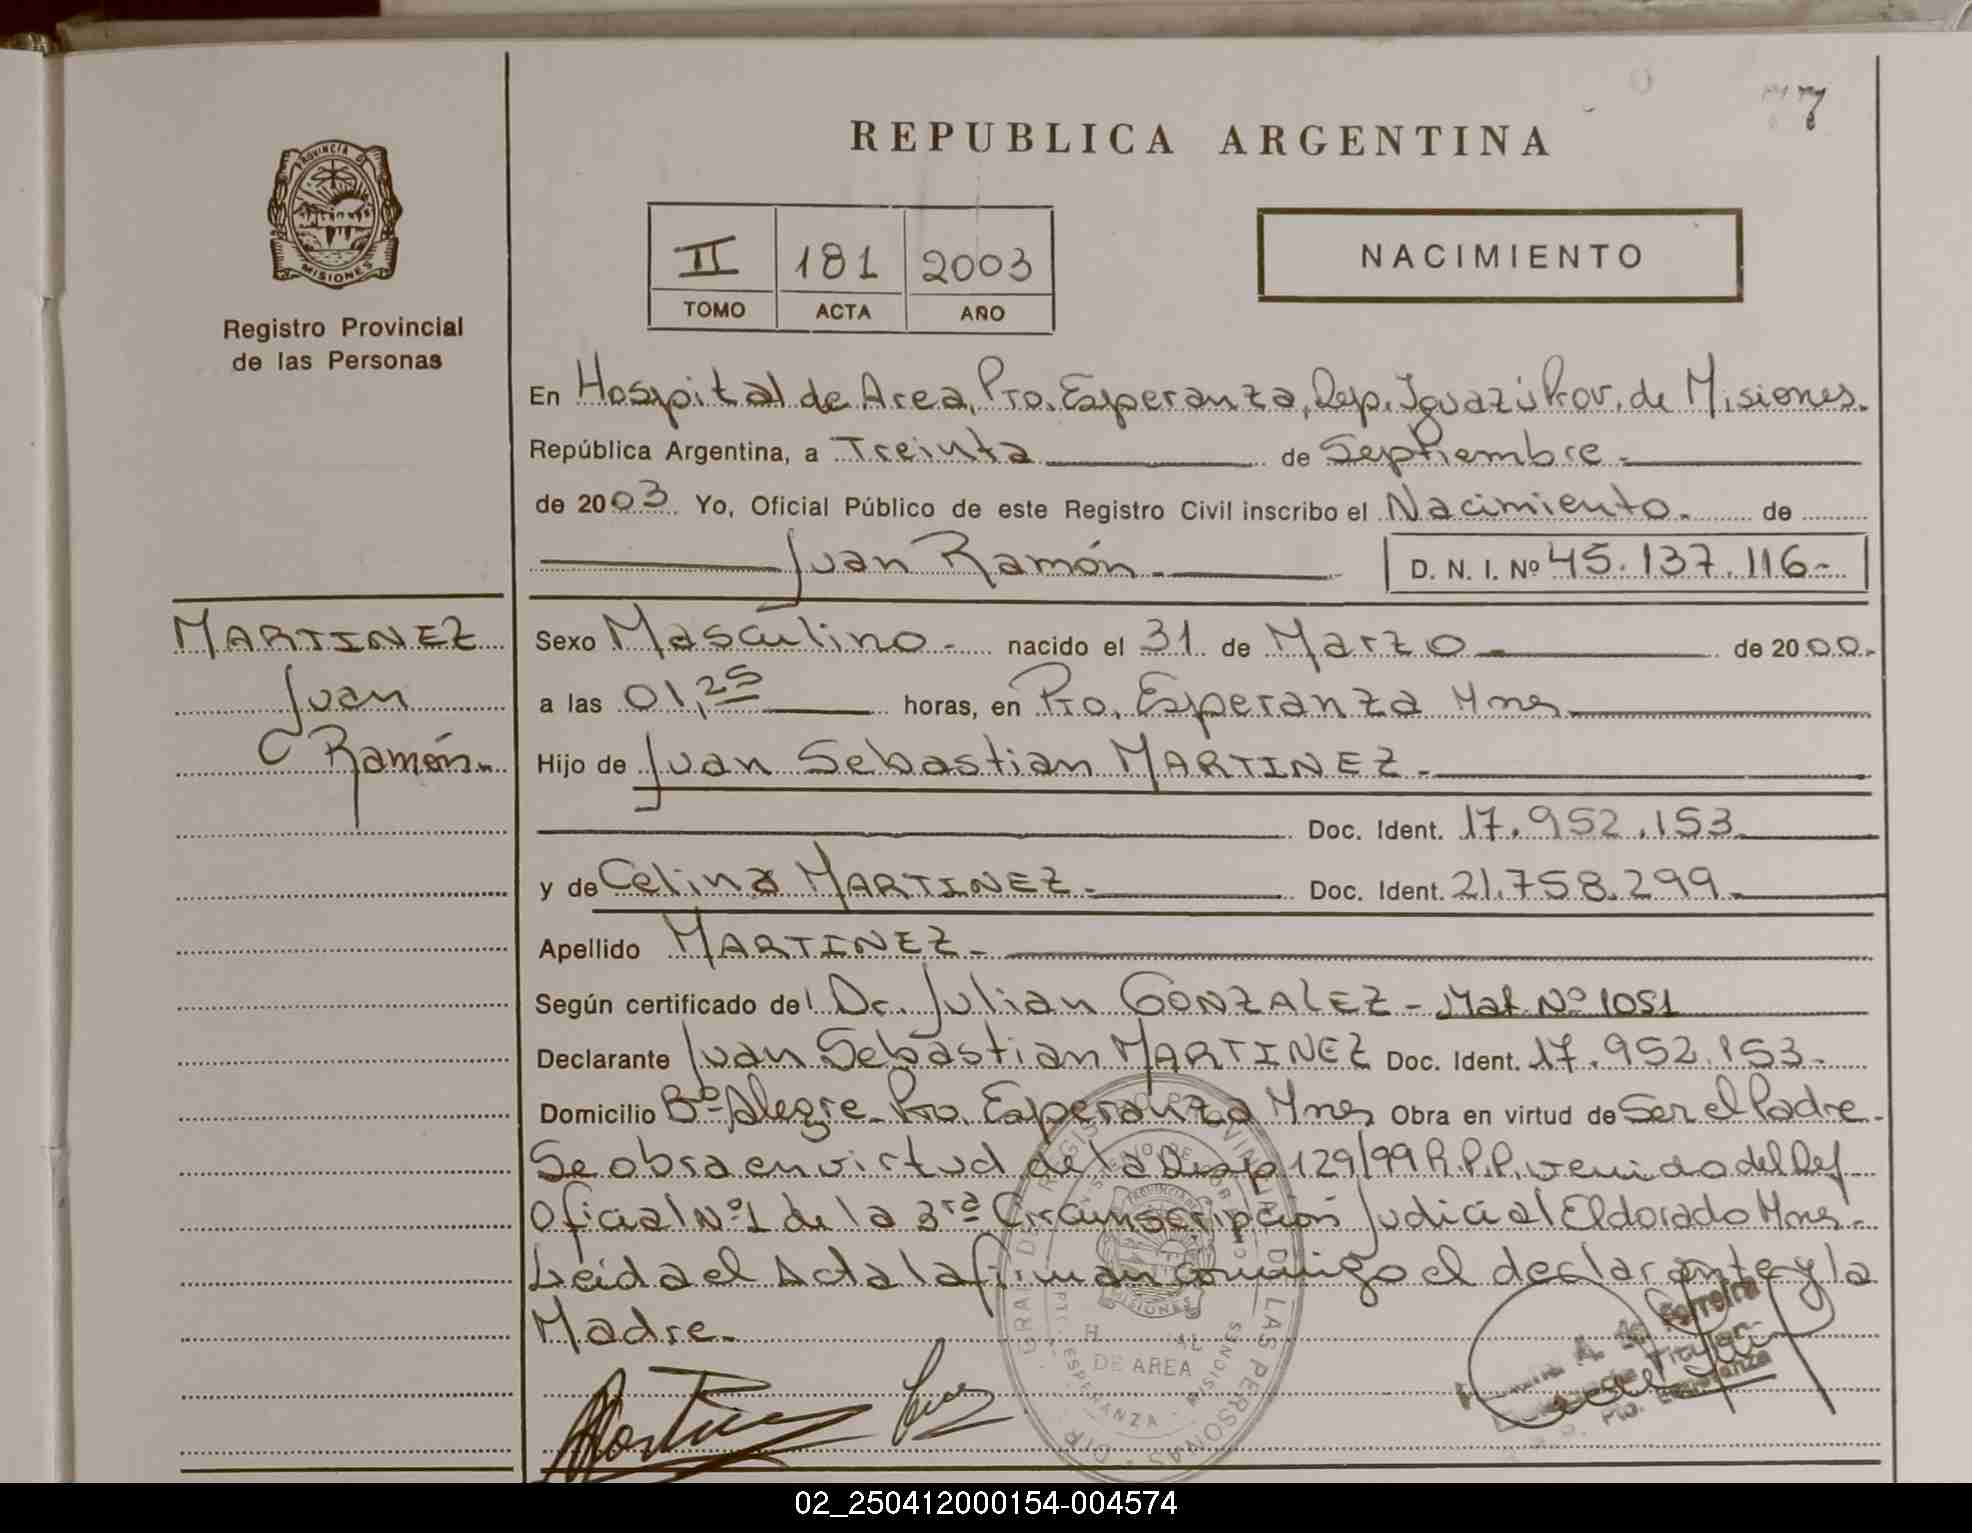 7
REPUBLICA ARGENTINA
PROVINCIA DE
MISIONES
Registro Provincial
de las Personas
II 181 2003
TOMO ACTA AÑO
NACIMIENTO
En Hospital de Area, Pto. Esperanza, Dep. Iguazú Prov. de Misiones.
República Argentina, a Treinta de Septiembre.
de 2003 Yo, Oficial Público de este Registro Civil inscribo el Nacimiento. de
Juan Ramón. D. N. I. Nº 45.137.116-
MARTINEZ
Juan
Ramón.
Sexo Masculino nacido el 31 de Marzo de 2000.
a las 01,25 horas, en Pto. Esperanza Mnes
Hijo de Juan Sebastian MARTINEZ.
Doc. Ident. 17.952.153
y de Celina MARTINEZ. Doc. Ident. 21.758.299
Apellido MARTINEZ
Según certificado del Dr. Julian GONZALEZ - Mat Nº 1051
Declarante Juan Sebastian MARTINEZ Doc. Ident. 17.952.153
Domicilio Bº Alegre Pto. Esperanza Mnes Obra en virtud de Ser el Padre
Se obra en virtud de la Disp 129/99 R.P.P. venida del Def
Oficial Nº1 de la 3ra Circunscripción Judicial Eldorado Mnes
Leida el Acta la firman conmigo el declarante y la
Madre
DE AREA
ESPERANZA - MISIONES
Ferreira
Titular
Pto. Esperanza
02_250412000154-004574